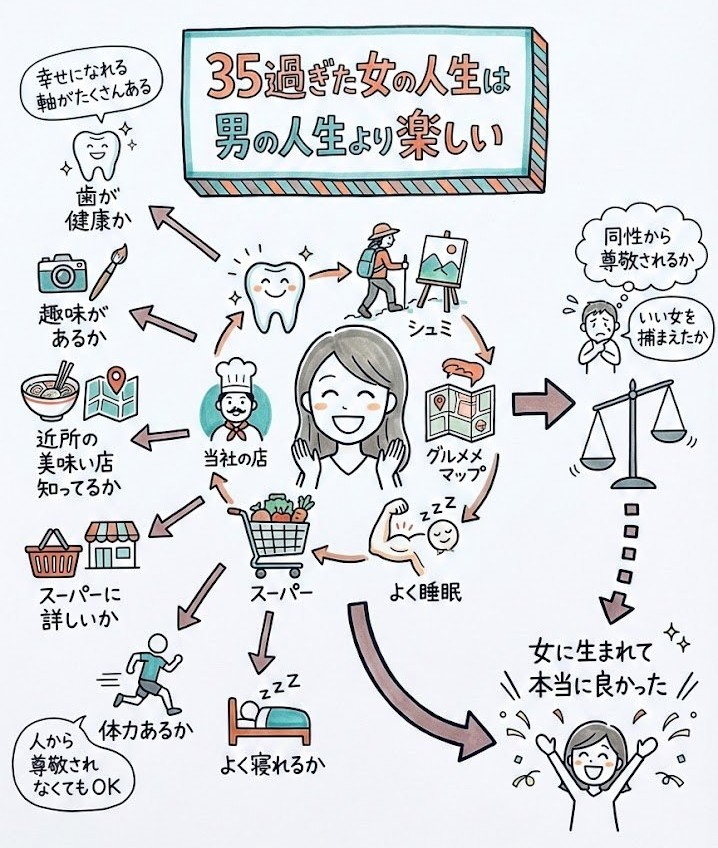 35過ぎた女の人生は
男の人生より楽しい
幸せになれる
軸がたくさんある
歯が
健康か
趣味が
あるか
近所の
美味い店
知ってるか
スーパーに
詳しいか
体力あるか
人から
尊敬され
なくてもOK
zzz
よく寝れるか
シュミ
グルメメ
マップ
zzz
よく睡眠
スーパー
当社の店
同性から
尊敬されるか
いい女を
捕まえたか
女に生まれて
本当に良かった